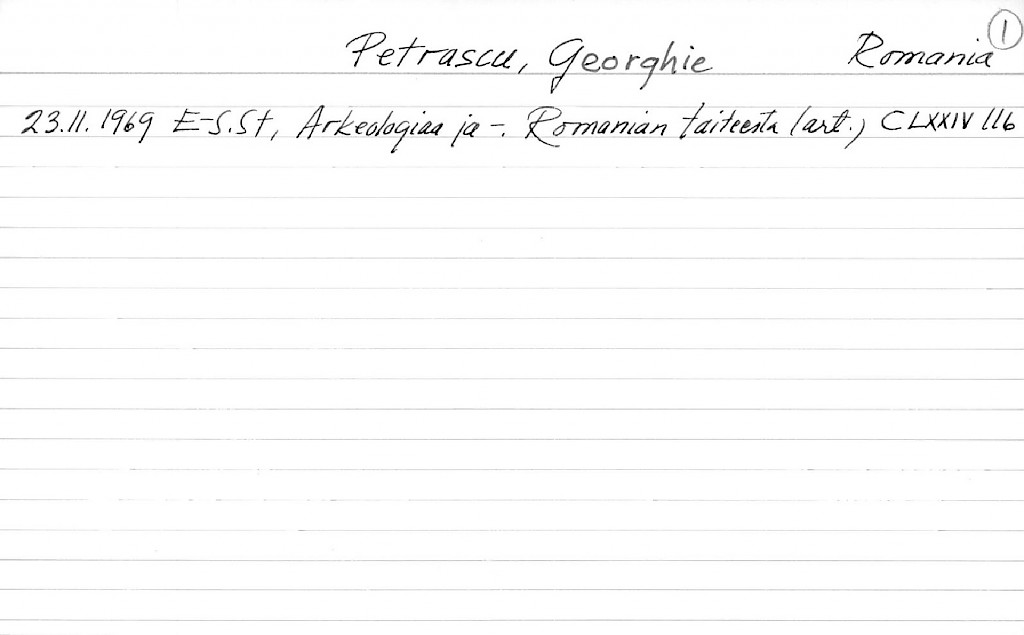 Petrascu, Georghie Romania 1
23.11.1969 E-S.St, Arkeologiaa ja -. Romanian taiteesta (art.) CLXXIV 116